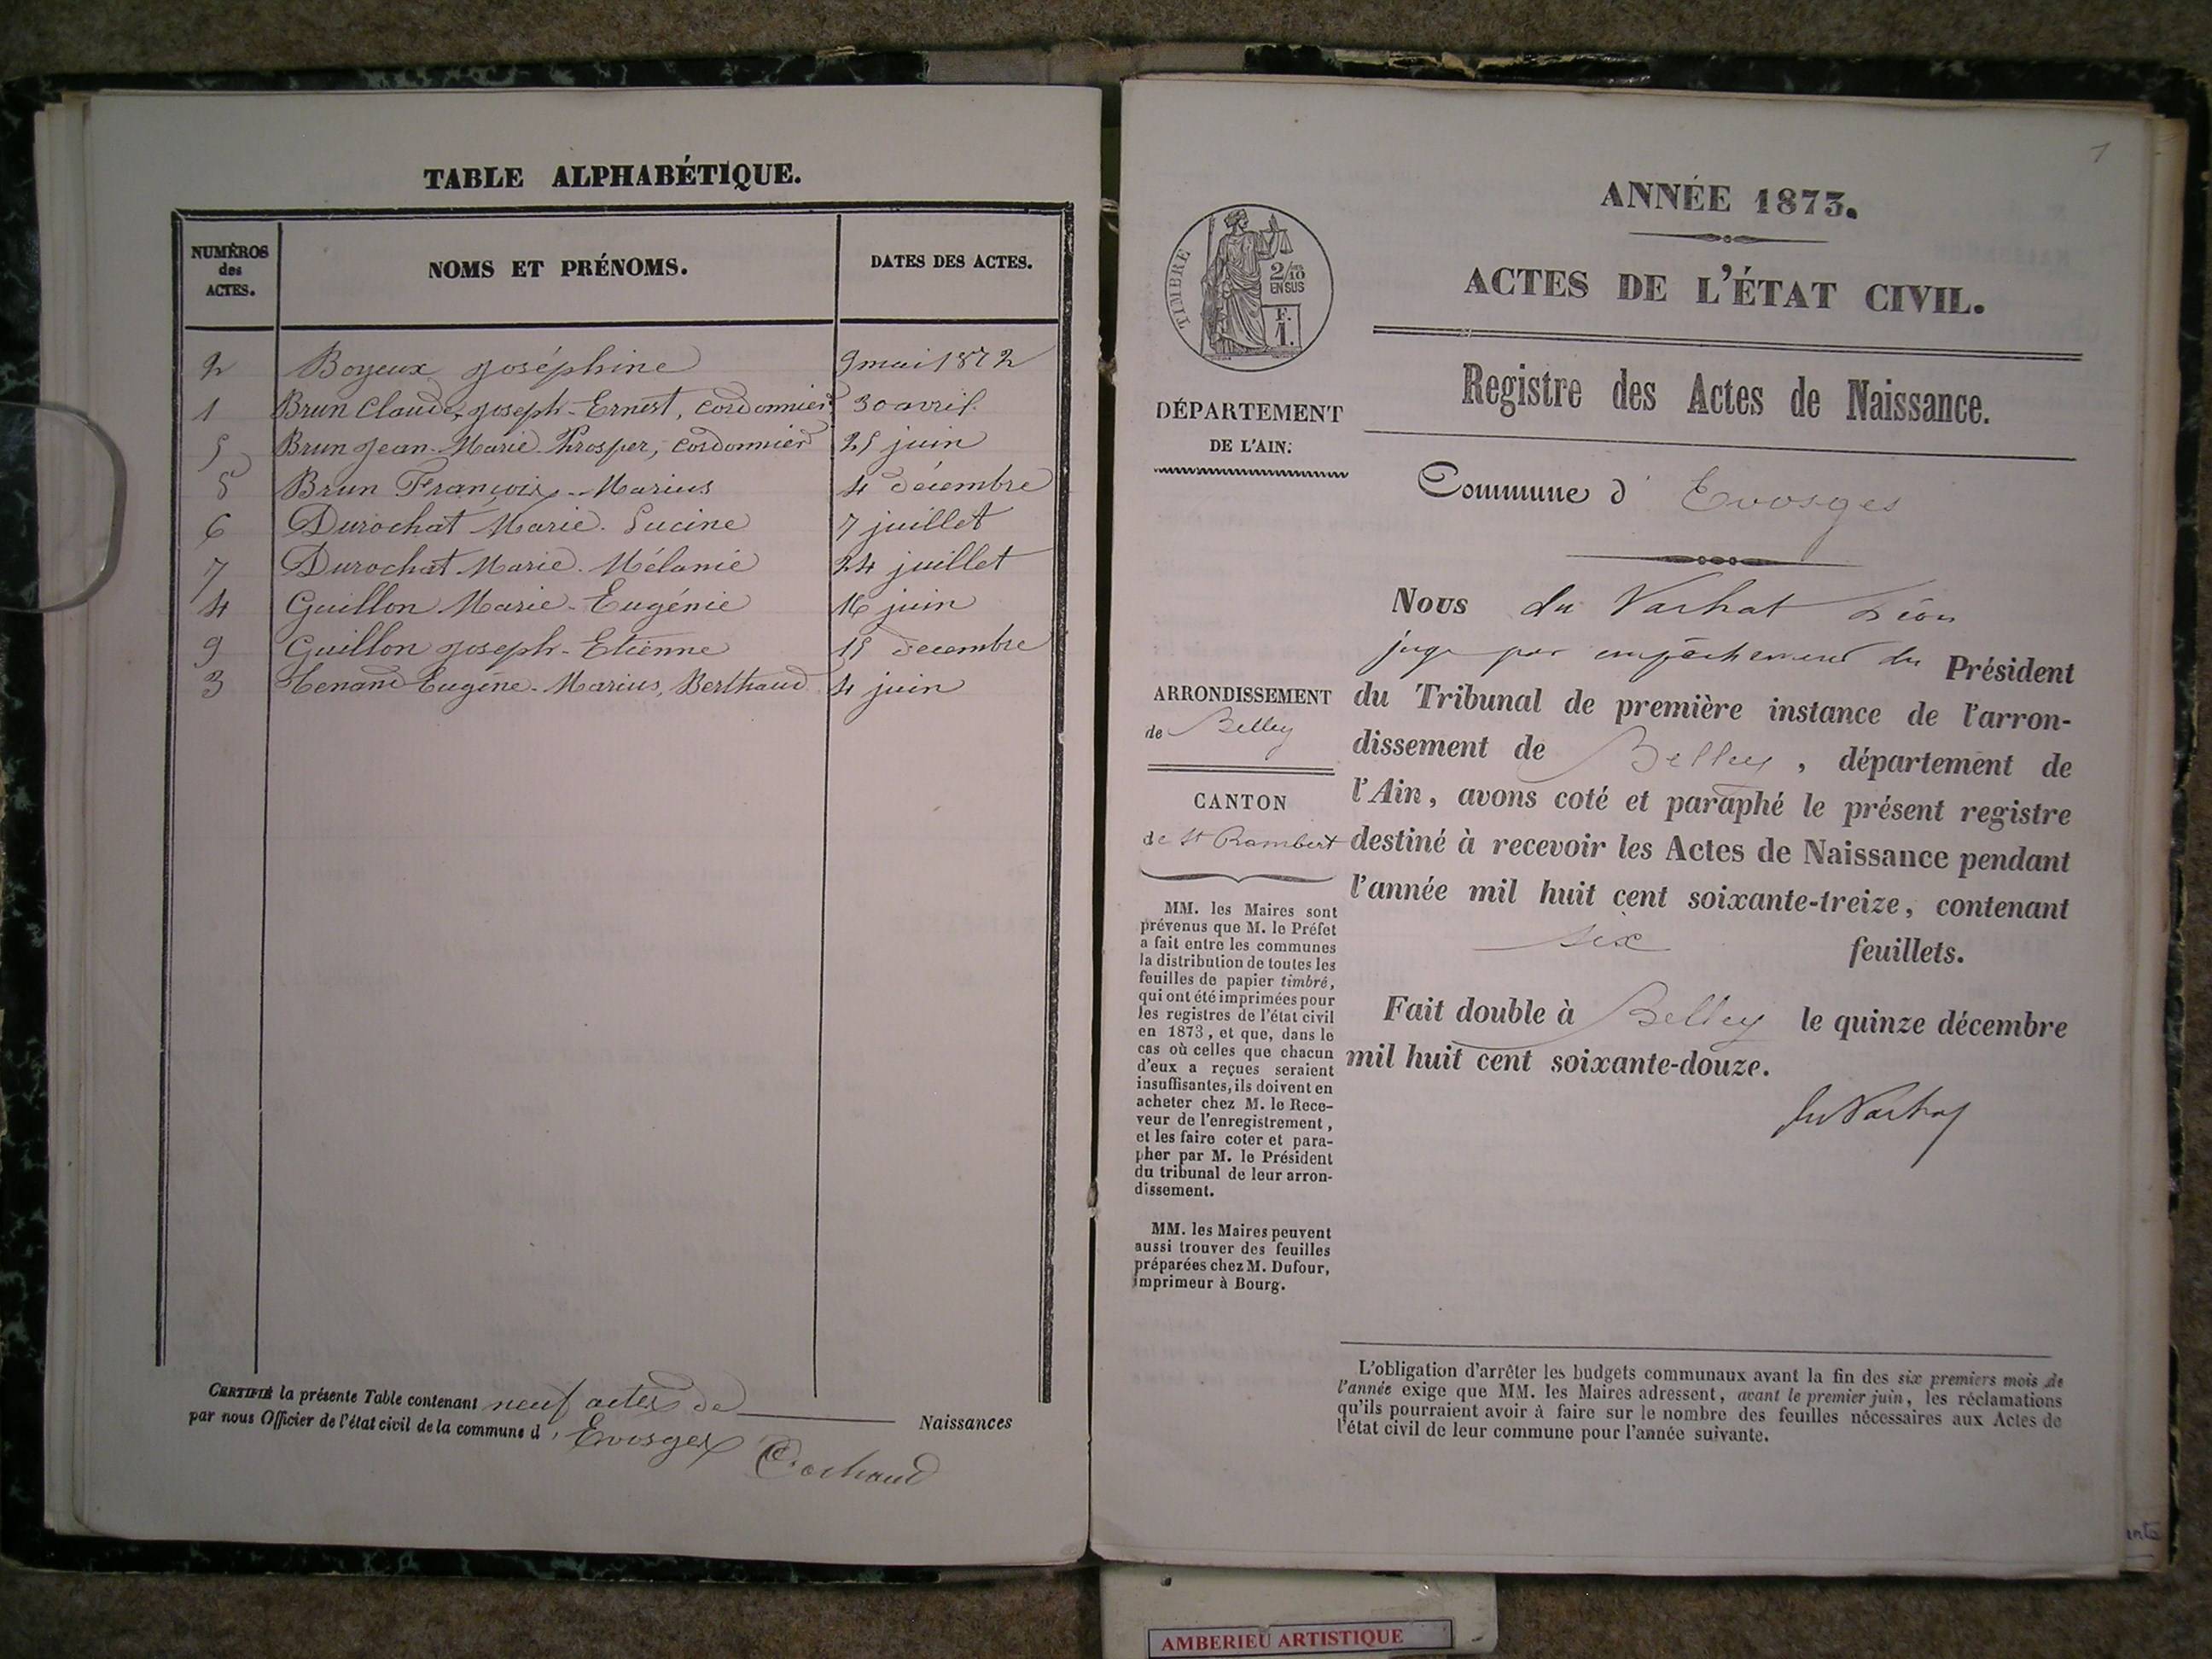 TABLE ALPHABÉTIQUE.
NUMÉROS
des
ACTES.
NOMS ET PRÉNOMS.
DATES DES ACTES.
2 Boyeux Joséphine 9 mai 1872
1 Brun Claude, Joseph-Ernest, cordonnier 30 avril.
5 Brun Jean-Marie-Prosper, cordonnier 25 juin
8 Brun François-Marius 4 décembre
6 Durochat Marie-Lucine 7 juillet
7 Durochat Marie-Mélanie 24 juillet
4 Guillon Marie-Eugénie 16 juin
9 Guillon Joseph-Etienne 15 décembre
3 Tenand Eugène-Marius, Berthaud 4 juin
CERTIFIÉ la présente Table contenant neuf actes de Naissances
par nous Officier de l'état civil de la commune d' Evosges
1
ANNÉE 1873.
ACTES DE L'ÉTAT CIVIL.
Registre des Actes de Naissance.
TIMBRE
2/10
EN SUS
F.
1.
DÉPARTEMENT
DE L'AIN.
Commune d' Evosges
ARRONDISSEMENT
de Belley
CANTON
de St Rambert
MM. les Maires sont
prévenus que M. le Préfet
a fait entre les communes
la distribution de toutes les
feuilles de papier timbré,
qui ont été imprimées pour
les registres de l'état civil
en 1873, et que, dans le
cas où celles que chacun
d'eux a reçues seraient
insuffisantes, ils doivent en
acheter chez M. le Rece-
veur de l'enregistrement,
et les faire coter et para-
pher par M. le Président
du tribunal de leur arron-
dissement.
MM. les Maires peuvent
aussi trouver des feuilles
préparées chez M. Dufour,
imprimeur à Bourg.
Nous du Varhat Léon
juge par empêchement du Président
du Tribunal de première instance de l'arron-
dissement de Belley, département de
l'Ain, avons coté et paraphé le présent registre
destiné à recevoir les Actes de Naissance pendant
l'année mil huit cent soixante-treize, contenant
six feuillets.
Fait double à Belley le quinze décembre
mil huit cent soixante-douze.
L'obligation d'arrêter les budgets communaux avant la fin des six premiers mois de
l'année exige que MM. les Maires adressent, avant le premier juin, les réclamations
qu'ils pourraient avoir à faire sur le nombre des feuilles nécessaires aux Actes de
l'état civil de leur commune pour l'année suivante.
AMBERIEU ARTISTIQUE